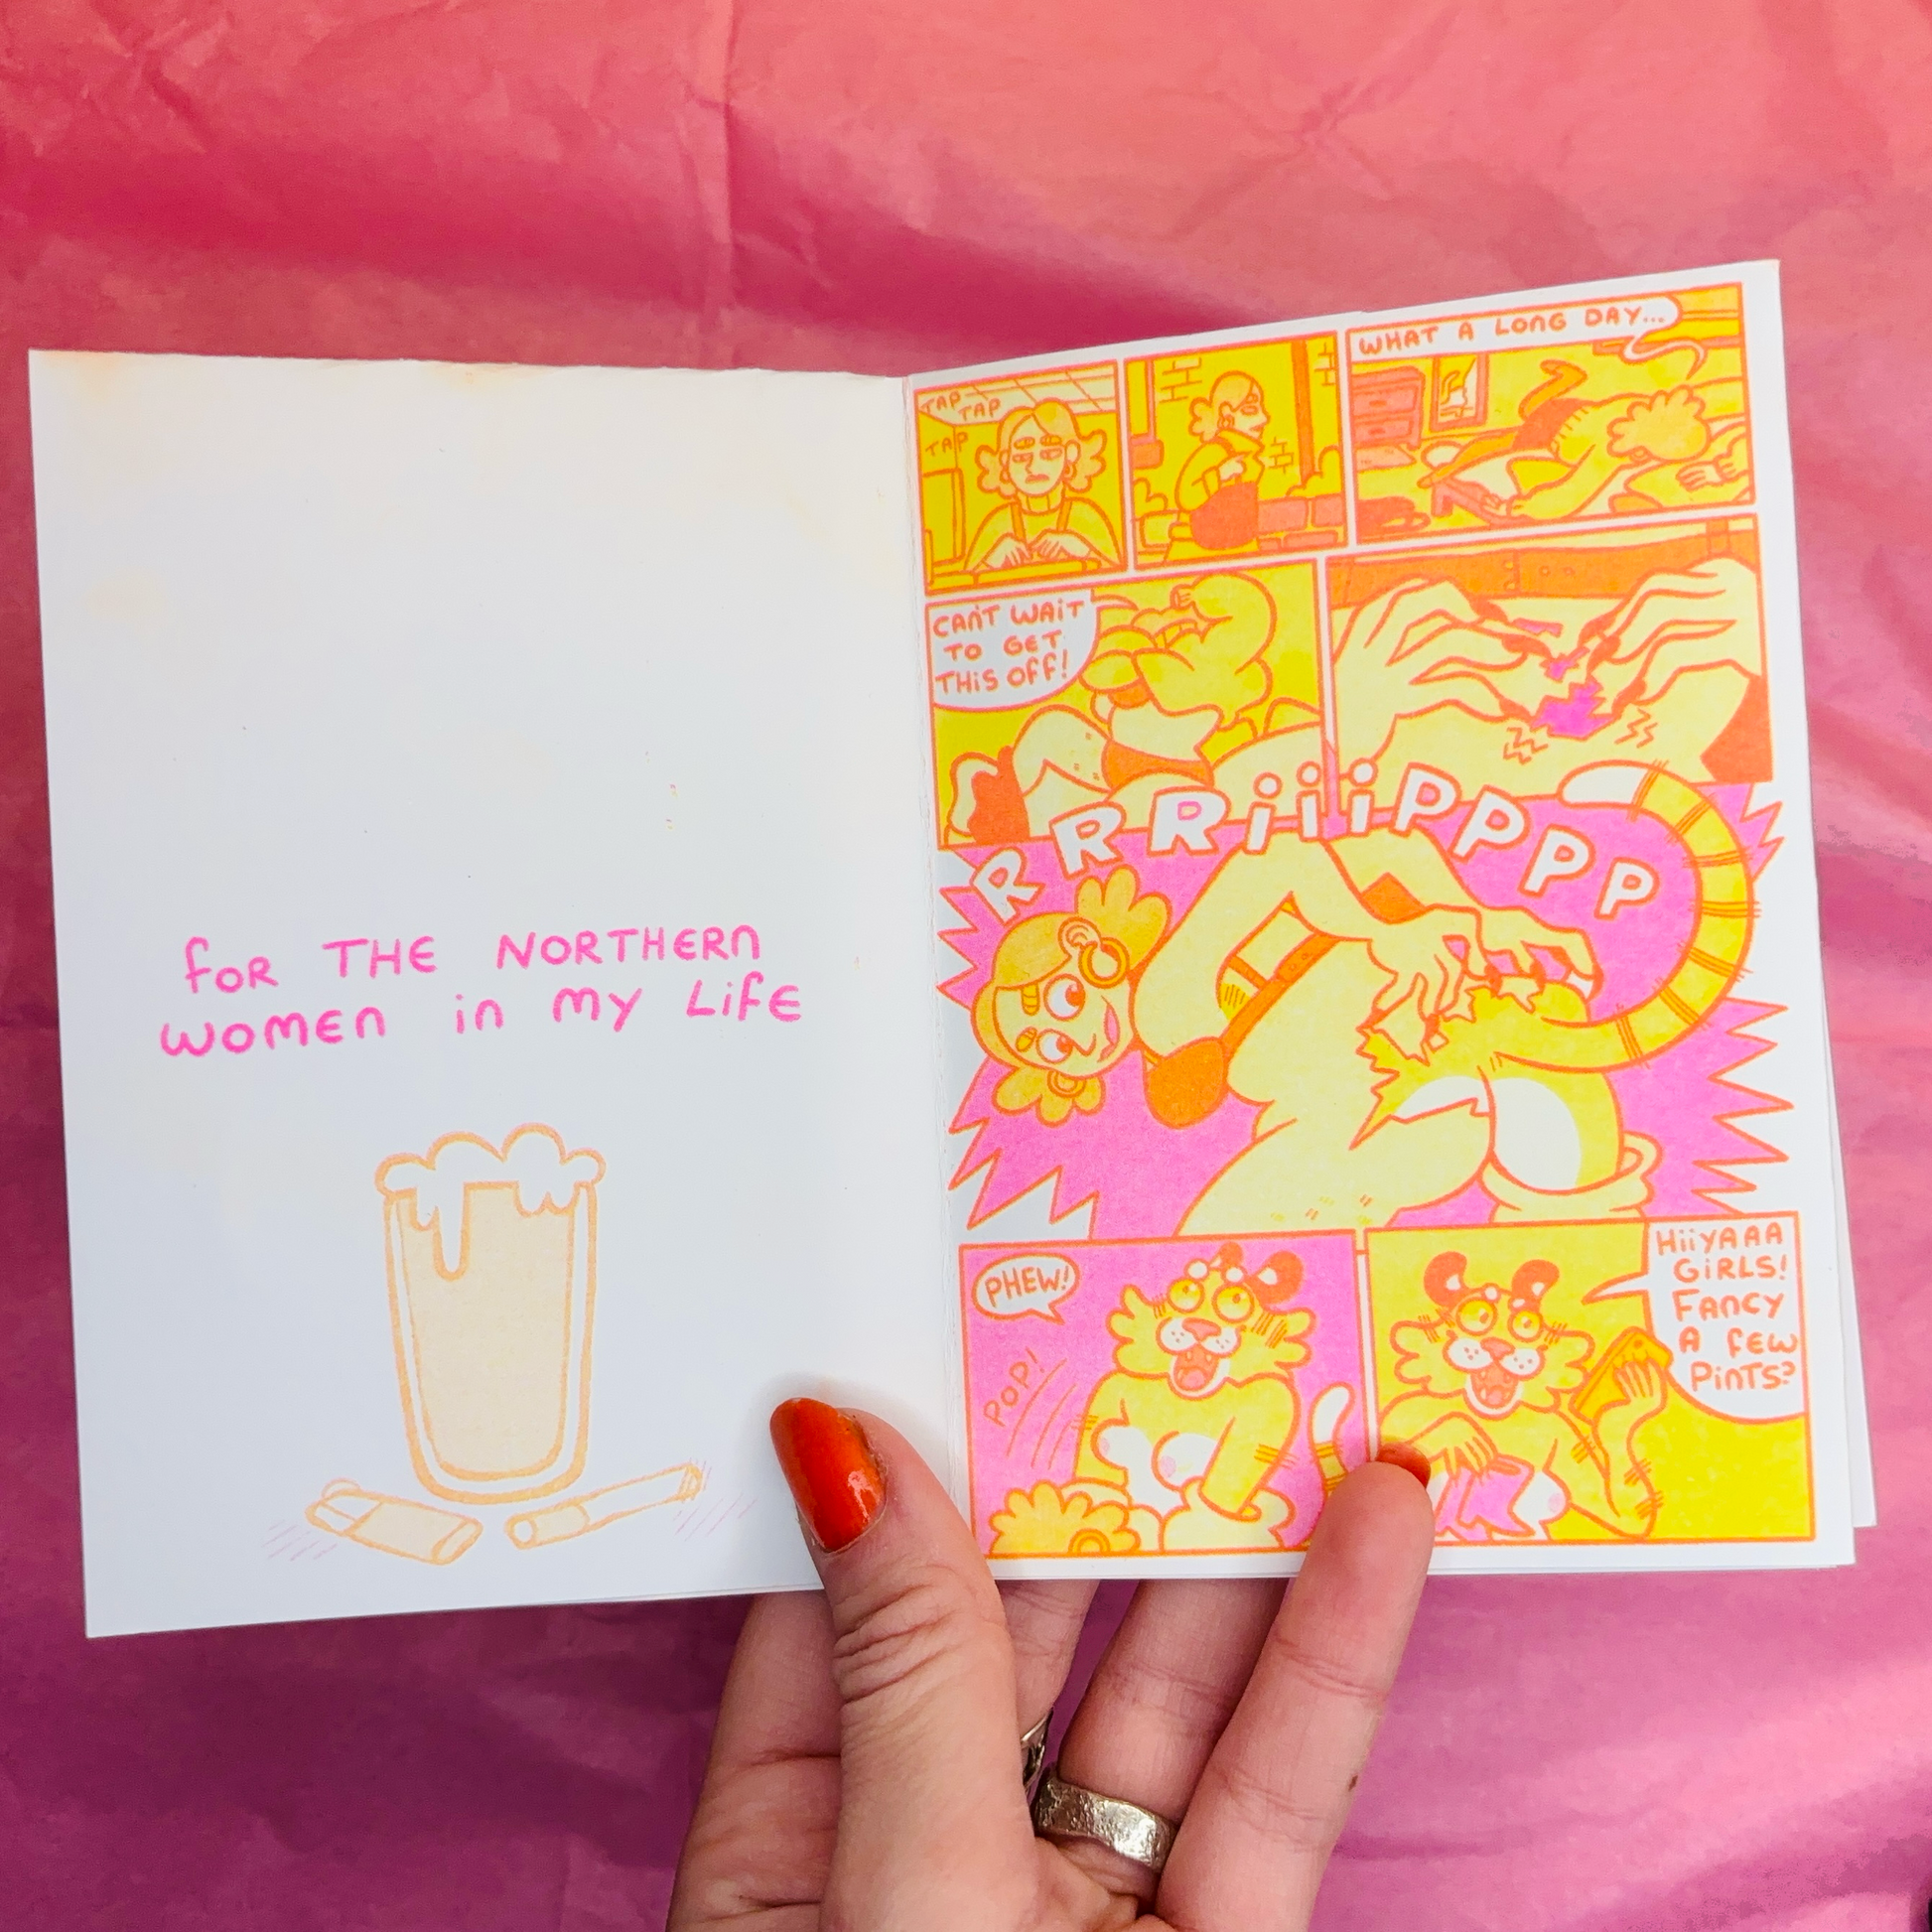 for THE NORTHERN
WOMEN in MY LifE
TAP
TAP
TAP
WHAT A LONG DAY...
CAN'T WAIT
TO GET
THiS Off!
RRRiiiPPPP
PHEW!
POP!
HiiYAAA
GiRLS!
FANCY
A fEW
PiNTS?